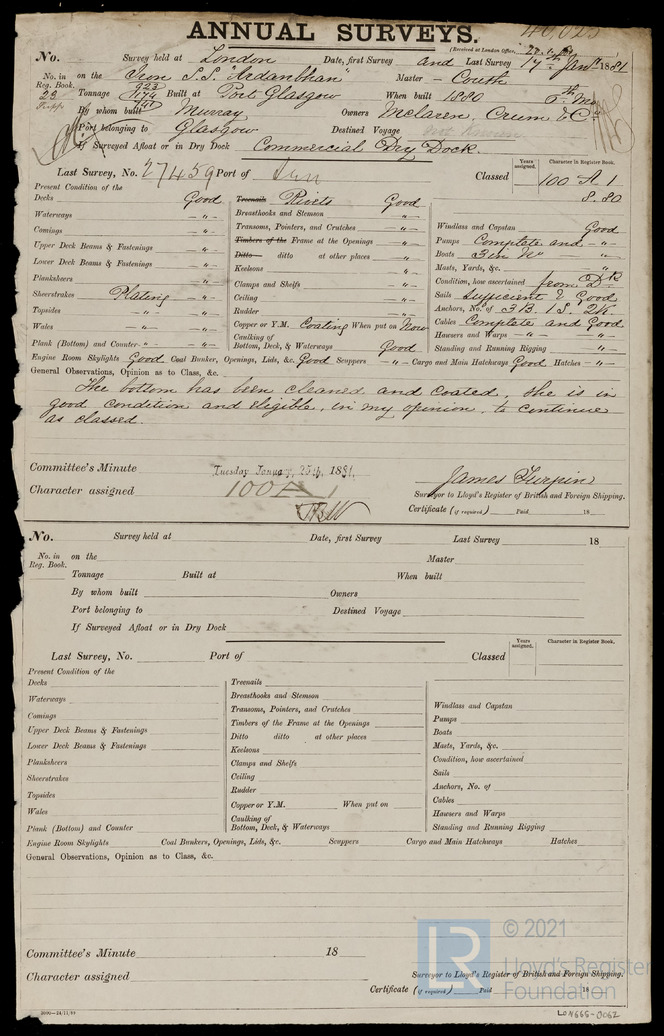 ANNUAL SURVEYS. 40,023
(Received at London Office,
No. Survey held at London Date, first Survey and Last Survey 17th Jany 1881
No. in Reg. Book. on the Iron S.S. "Ardanbhan" Master Couth
23 Tonnage 923 1174 741 Built at Port Glasgow When built 1880 8th Mo
By whom built Murray Owners McLaren, Crum & Co
Port belonging to Glasgow Destined Voyage
If Surveyed Afloat or in Dry Dock Commercial Dry Dock.
Last Survey, No. 27459 Port of Classed Years assigned. 100 Character in Register Book. A 1
8.80
Present Condition of the
Decks Good
Waterways "
Comings "
Upper Deck Beams & Fastenings "
Lower Deck Beams & Fastenings "
Planksheers "
Sheerstrakes Plating "
Topsides " "
Wales " "
Plank (Bottom) and Counter " "
Treenails Rivets Good
Breasthooks and Stemson "
Transoms, Pointers, and Crutches "
Timbers of the Frame at the Openings "
Ditto ditto at other places "
Keelsons "
Clamps and Shelfs "
Ceiling "
Rudder "
Copper or Y.M. Coating When put on Now
Caulking of Bottom, Deck, & Waterways Good
Windlass and Capstan Good
Pumps Complete and "
Boats 3 in No "
Masts, Yards, &c. "
Condition, how ascertained from Dk
Sails Sufficient & Good
Anchors, No. of 3B. 1S. 2K
Cables Complete and Good
Hawsers and Warps " "
Standing and Running Rigging "
Engine Room Skylights Good Coal Bunker, Openings, Lids, &c. Good Scuppers " Cargo and Main Hatchways Good Hatches "
General Observations, Opinion as to Class, &c.
The bottom has been cleaned and coated, She is in
good condition and eligible, in my opinion, to continue
as classed.
Committee's Minute Tuesday January, 25th, 1881.
Character assigned 100 A 1
James Turpin
Surveyor to Lloyd's Register of British and Foreign Shipping.
Certificate (if required) Paid 18
No. Survey held at Date, first Survey Last Survey 18
No. in Reg. Book. on the Master
Tonnage Built at When built
By whom built Owners
Port belonging to Destined Voyage
If Surveyed Afloat or in Dry Dock
Last Survey, No. Port of Classed Years assigned. Character in Register Book.
Present Condition of the
Decks
Waterways
Comings
Upper Deck Beams & Fastenings
Lower Deck Beams & Fastenings
Planksheers
Sheerstrakes
Topsides
Wales
Plank (Bottom) and Counter
Treenails
Breasthooks and Stemson
Transoms, Pointers, and Crutches
Timbers of the Frame at the Openings
Ditto ditto at other places
Keelsons
Clamps and Shelfs
Ceiling
Rudder
Copper or Y.M. When put on
Caulking of Bottom, Deck, & Waterways
Windlass and Capstan
Pumps
Boats
Masts, Yards, &c.
Condition, how ascertained
Sails
Anchors, No. of
Cables
Hawsers and Warps
Standing and Running Rigging
Engine Room Skylights Coal Bunkers, Openings, Lids, &c. Scuppers Cargo and Main Hatchways Hatches
General Observations, Opinion as to Class, &c.
Committee's Minute 18
Character assigned
Surveyor to Lloyd's Register of British and Foreign Shipping.
Certificate (if required) Paid 18
LR © 2021
Lloyd's Register
Foundation
LON665-0062